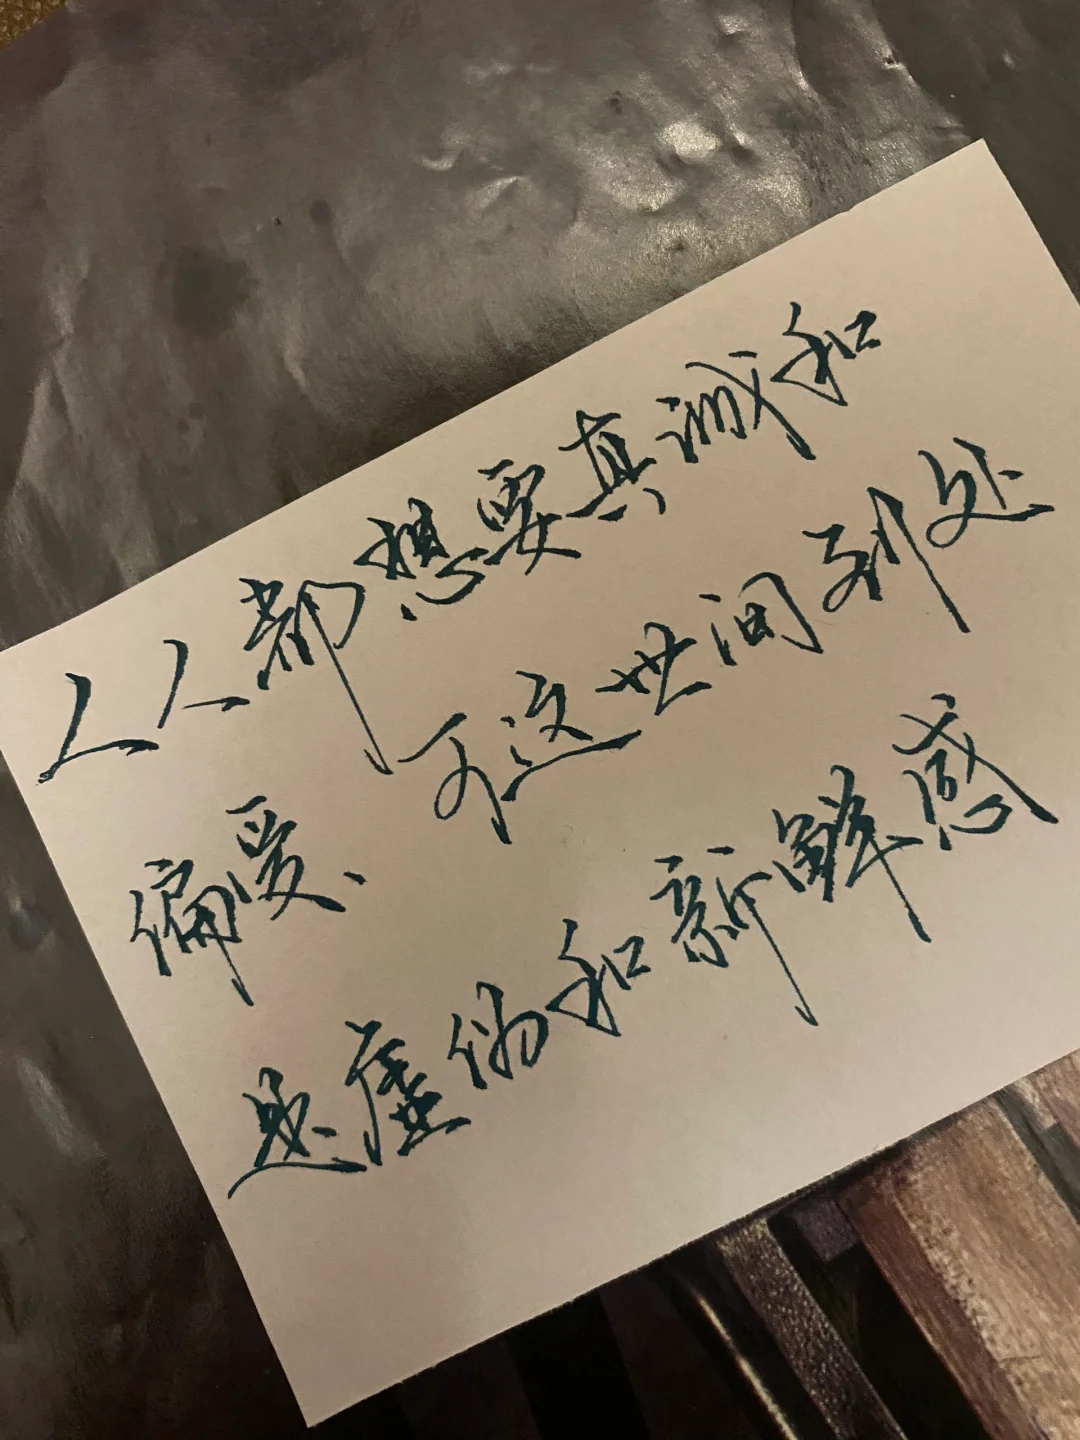 人人都想要真诚和
偏爱、可这世间到处
是虚伪和新鲜感